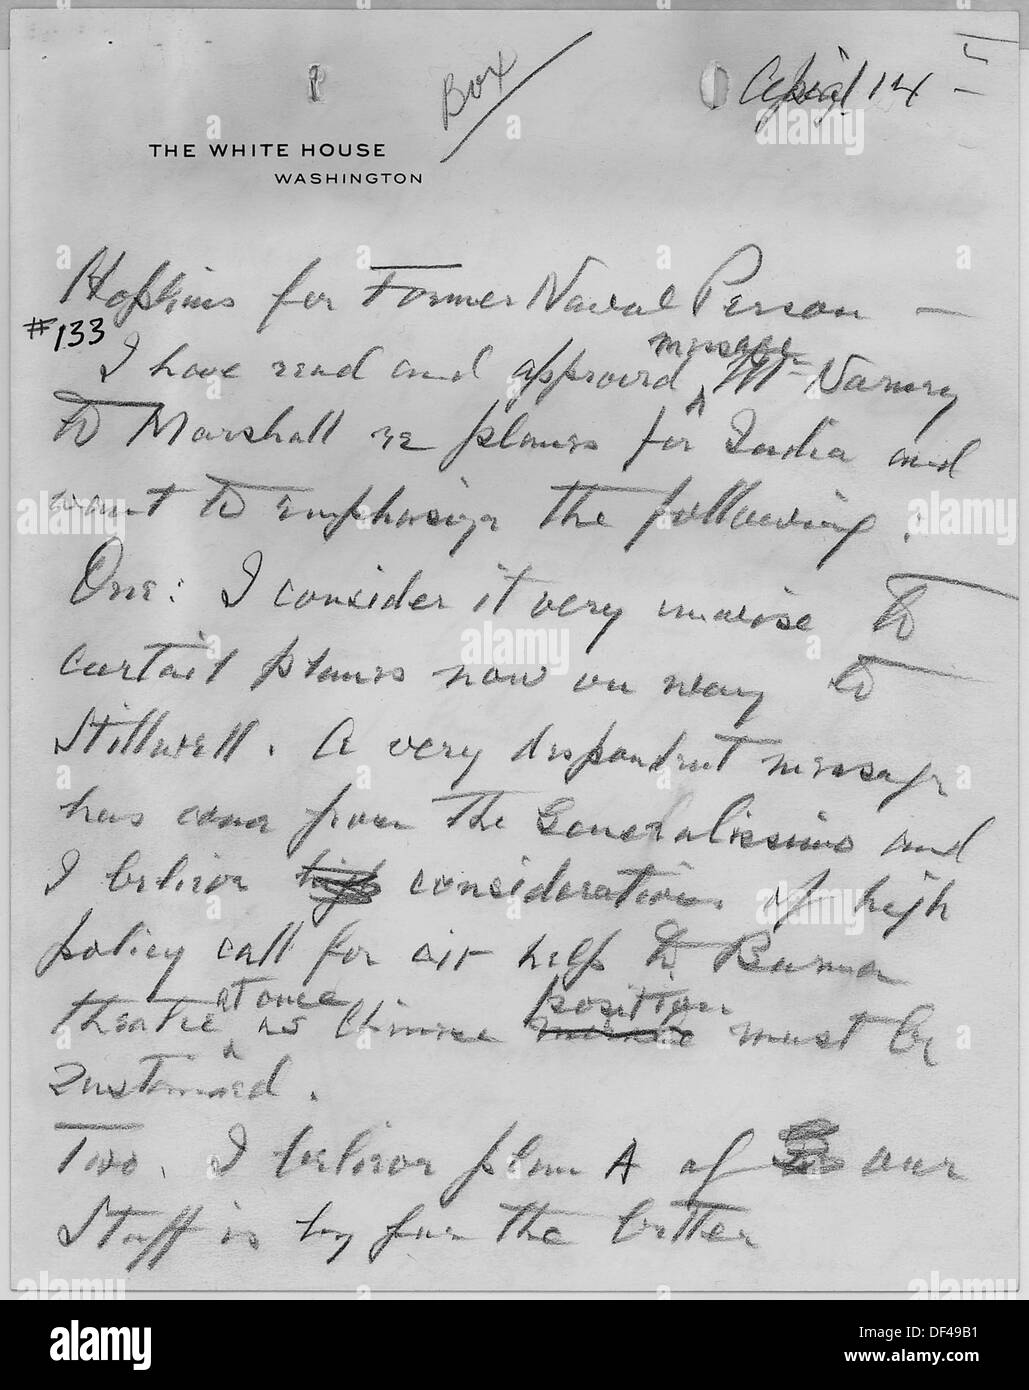 Box
April 14
THE WHITE HOUSE
WASHINGTON
Hopkins for Former Naval Person —
#133
message
I have read and approved McNarney
to Marshall re planes for India and
want to emphasize the following:
One: I consider it very unwise to
curtail planes now on way to
Stillwell. A very despondent message
has come from the Generalissimo and
I believe high considerations of high
policy call for air help to Burma
at once position
theatre as Chinese must be
sustained.
Two. I believe plan A of our
Staff is by far the better
a alamy
alamy
Image ID: DF49B1
www.alamy.com